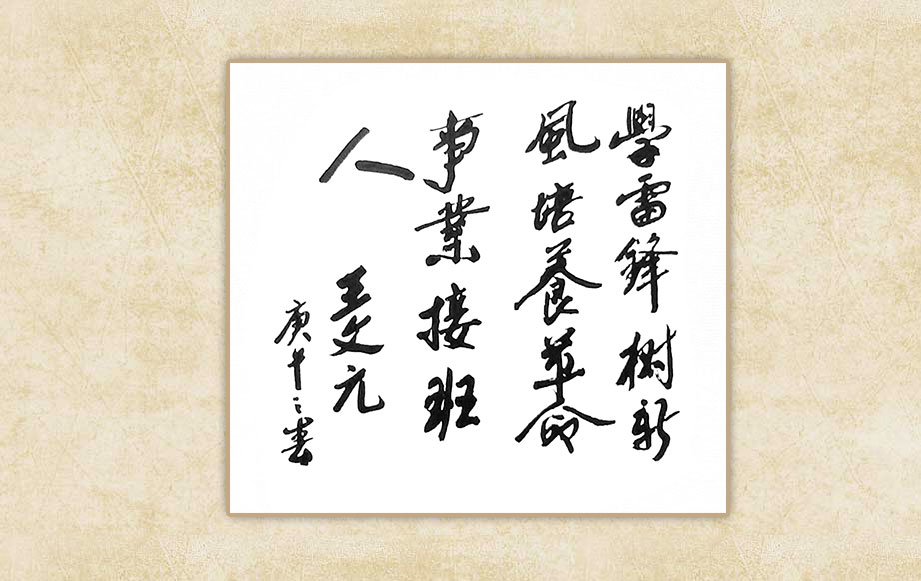 學雷鋒樹新
風培養革命
事業接班
人
王文元
庚午之春